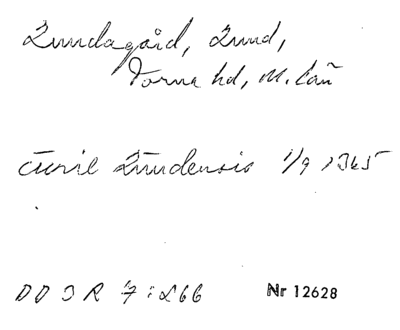 Lundagård, Lund,
Torna hd, M. län
Lundensis 1/9 1365
DD 3 R 7:266
Nr 12628